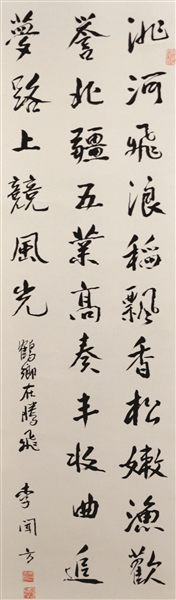 洮河飛浪稻飄香松嫩漁歡
譽北疆五業高奏丰收曲追
夢路上競風光
鶴鄉在騰飛 李聞方